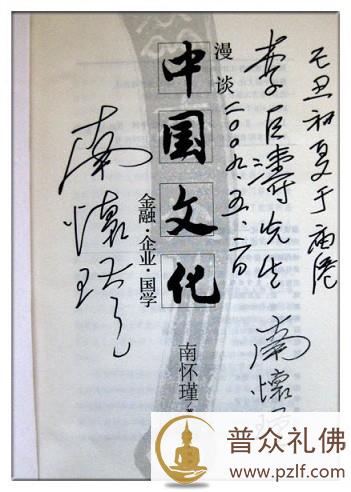 己丑初夏于庙港
李巨濤先生
南懷瑾
漫谈
二〇〇九·五·二日
中国文化
金融·企业·国学
南怀瑾
南懷瑾
普众礼佛
www.pzlf.com